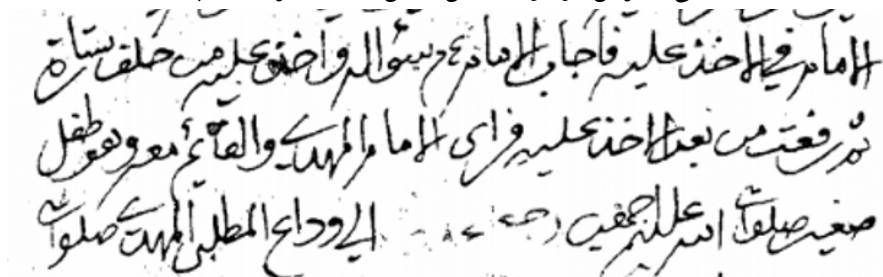 الامام في الاخذ عليه فاجاب الامام ع م سؤاله واخذ عليه من خلف ستارة
ثم رفعت من بعد الاخذ عليه فراى الامام المهدي والقائم معه وهو طفل
صغير صلوات الله عليهم اجمعين الي وداع المطلب المهدي صلوات